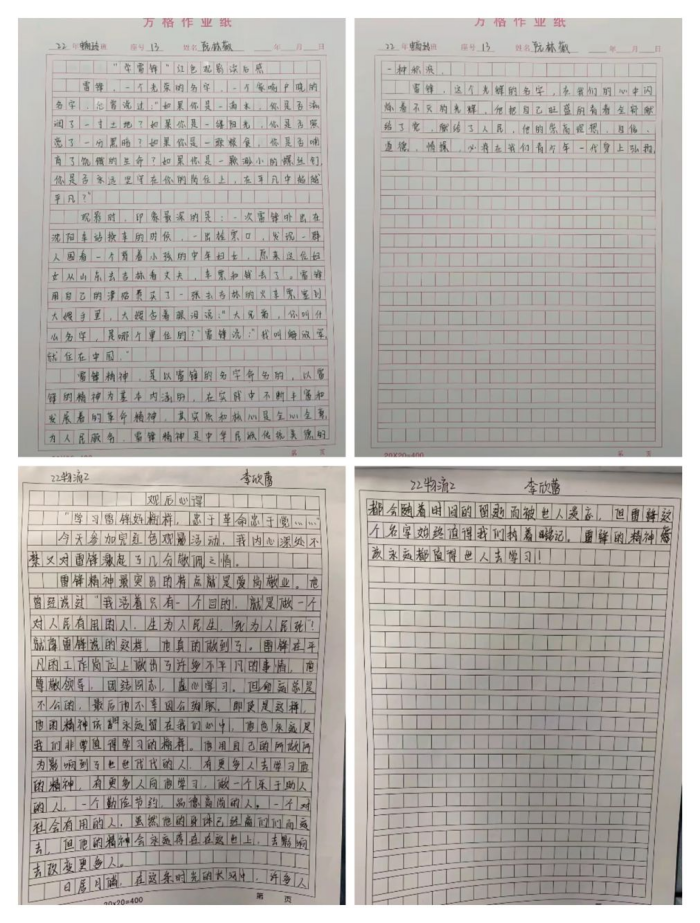 方格作业纸
22年 班 编号 13 姓名 年 月 日
"学雷锋"红色观影心得
雷锋，一个光荣的名字，一个家喻户晓的
名字，他曾说过"如果你是一滴水，你是否滋
润了一寸土地？如果你是一缕阳光，你是否照
亮了一分黑暗？如果你是一颗粮食，你是否哺
育了饥饿的生命？如果你是一颗最小的螺丝钉，
你是否永远坚守在你的岗位上，在平凡中
平凡？"
观影时，印象最深的是：一次雷锋外出在
沈阳车站换车的时候，一出检票口，发现一群
人围着一个背着小孩的中年妇女，原来这位妇
女从山东去吉林看丈夫，车票和钱丢了。雷锋
用自己的津贴费买了一张去吉林的火车票塞到
大嫂手里，大嫂含着眼泪说："大兄弟，你叫什
么名字，是哪个单位的？"雷锋说："我叫解放军，
就住在中国。"
雷锋精神，是以雷锋的名字命名的，以雷
锋的精神为基本内涵的，在实践中不断丰富和
发展着的革命精神，其实质和核心是全心全意
为人民服务，雷锋精神是中华民族传统美德的
20×20=400 第 页
方格作业纸
22年 班 编号 13 姓名 年 月 日
一种积淀。
雷锋，这个光辉的名字，在我们的心中闪
烁着不灭的光辉，他把自己旺盛的青春全部献
给了党，献给了人民，他的崇高理想、信仰、
道德、情操，必将在我们青少年一代身上弘扬。
20×20=400 第 页
22物流2 李欣蕾
观后心得
"学习雷锋好榜样，忠于革命忠于党……"
今天参加完红色观影活动，我内心深处不
禁又对雷锋激起了几分敬佩之情。
雷锋精神最突出的特点就是爱岗敬业。他
曾经说过"我活着只有一个目的，就是做一个
对人民有用的人，生为人民生，死为人民死"！
就像雷锋说的这样，他真的做到了。雷锋在平
凡的工作岗位上做出了许多不平凡的事情，他
尊敬领导，团结同志，虚心学习。但命运总是
不公的，最后他不幸因公殉职。即使是这样，
他的精神仍永远留在我们心中，他也永远是
我们非常值得学习的榜样。他用自己的所做所
为影响到了世世代代的人，有更多人去学习他
的精神，有更多人向他学习，做一个乐于助人
的人，一个勤俭节约，品德高尚的人。一个对
社会有用的人，虽然他的身体已经离我们而远
去，但他的精神会永远存在在这世上，去影响
去改变更多人。
日居月诸，在这条时光的长河中，许多人
20×20=400 第 页
22物流2 李欣蕾
都会随着时间的 而被世人遗忘，但雷锋这
个名字始终值得我们 着铭记。雷锋的精神
永远都值得世人去学习！